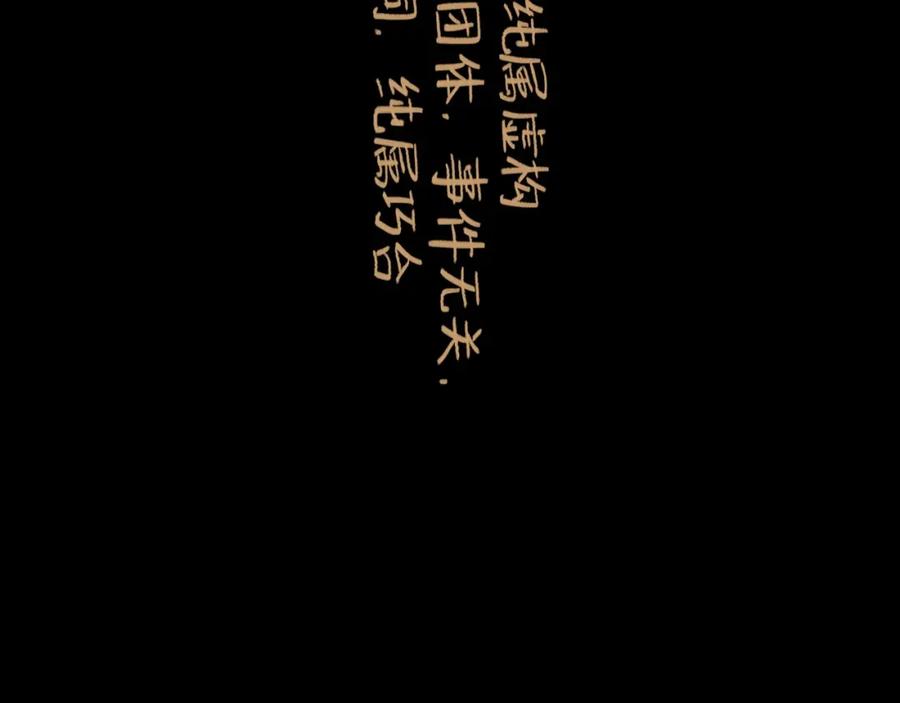 纯属虚构
团体，事件无关，
同，纯属巧合